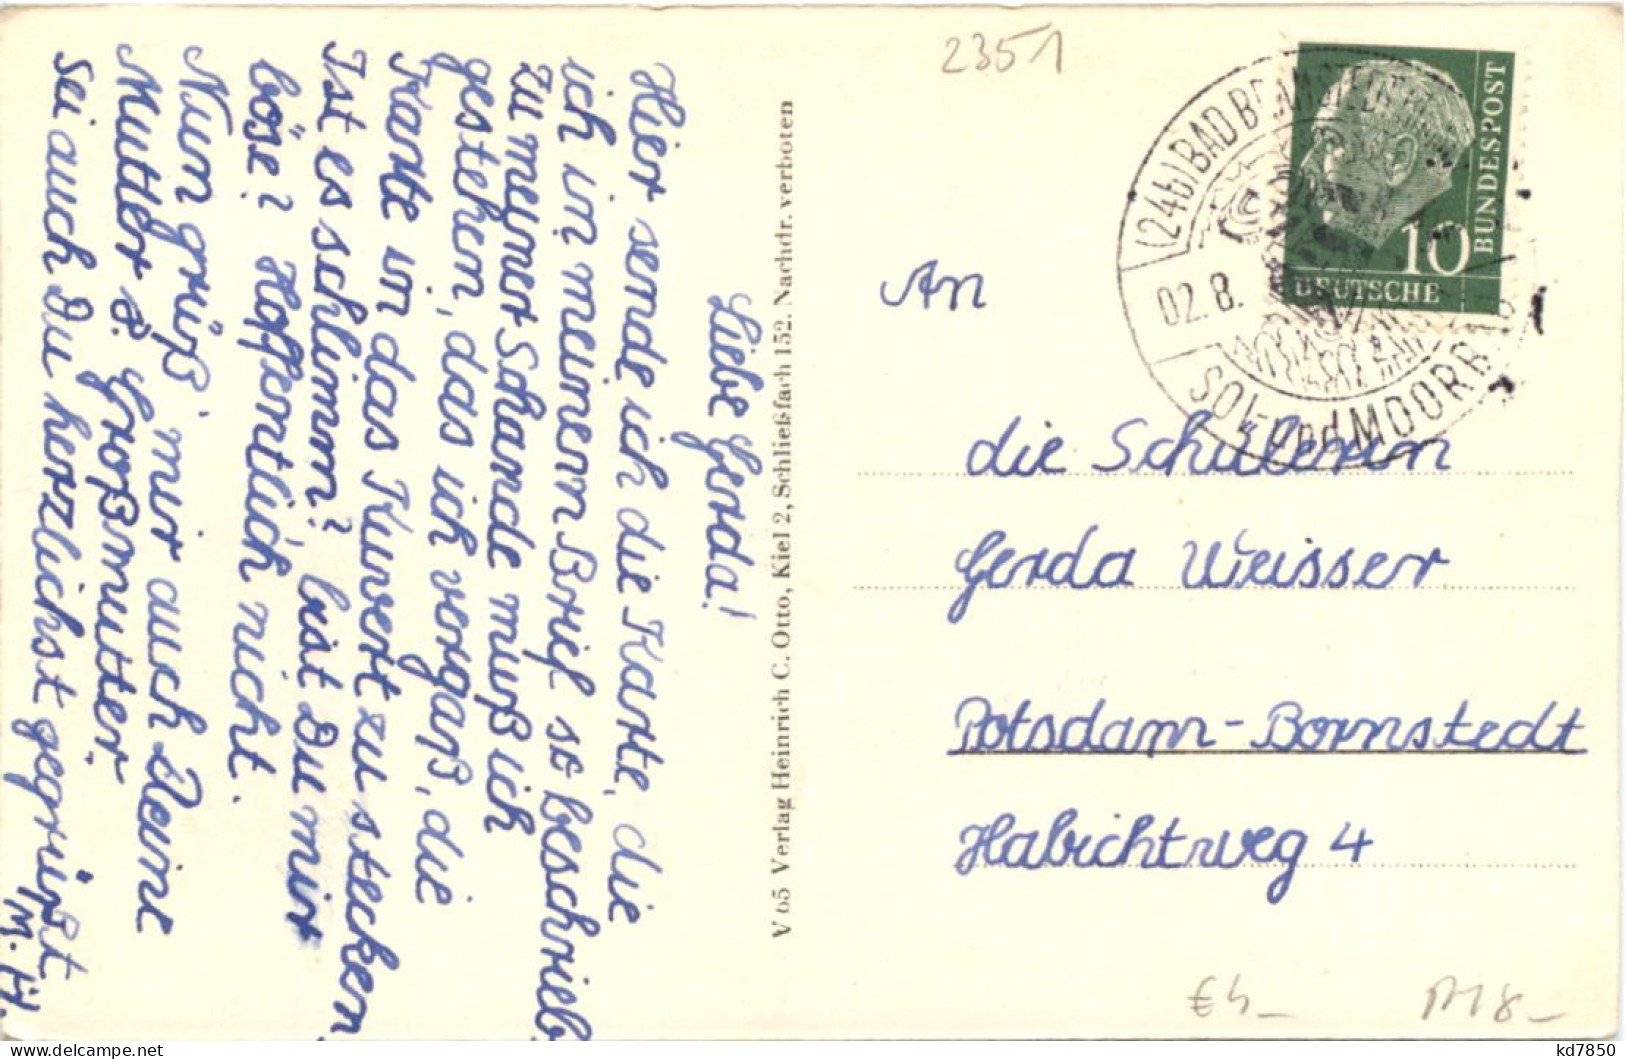 2351
Liebe Gerda!
Hier sende ich die Karte, die
ich in meinem Brief so beschrieb
Zu meiner Schande muß ich
gestehen, das ich vergaß, die
Karte in das Kuvert zu stecken
Ist es schlimm? bist Du mir
böse? Hoffentlich nicht.
Nun grüß' mir auch Deine
Mutter &. Großmutter.
Sei auch Du herzlichst gegrüßt
M. H.
V 65 Verlag Heinrich C. Otto, Kiel 2, Schließfach 152. Nachdr. verboten
(24b) BAD BRAMSTEDT
02.8.
SOL- und MOORBAD
DEUTSCHE
BUNDESPOST
10
An
die Schülerin
Gerda Weisser
Potsdam-Bornstedt
Habichtweg 4
€4_
kd7850